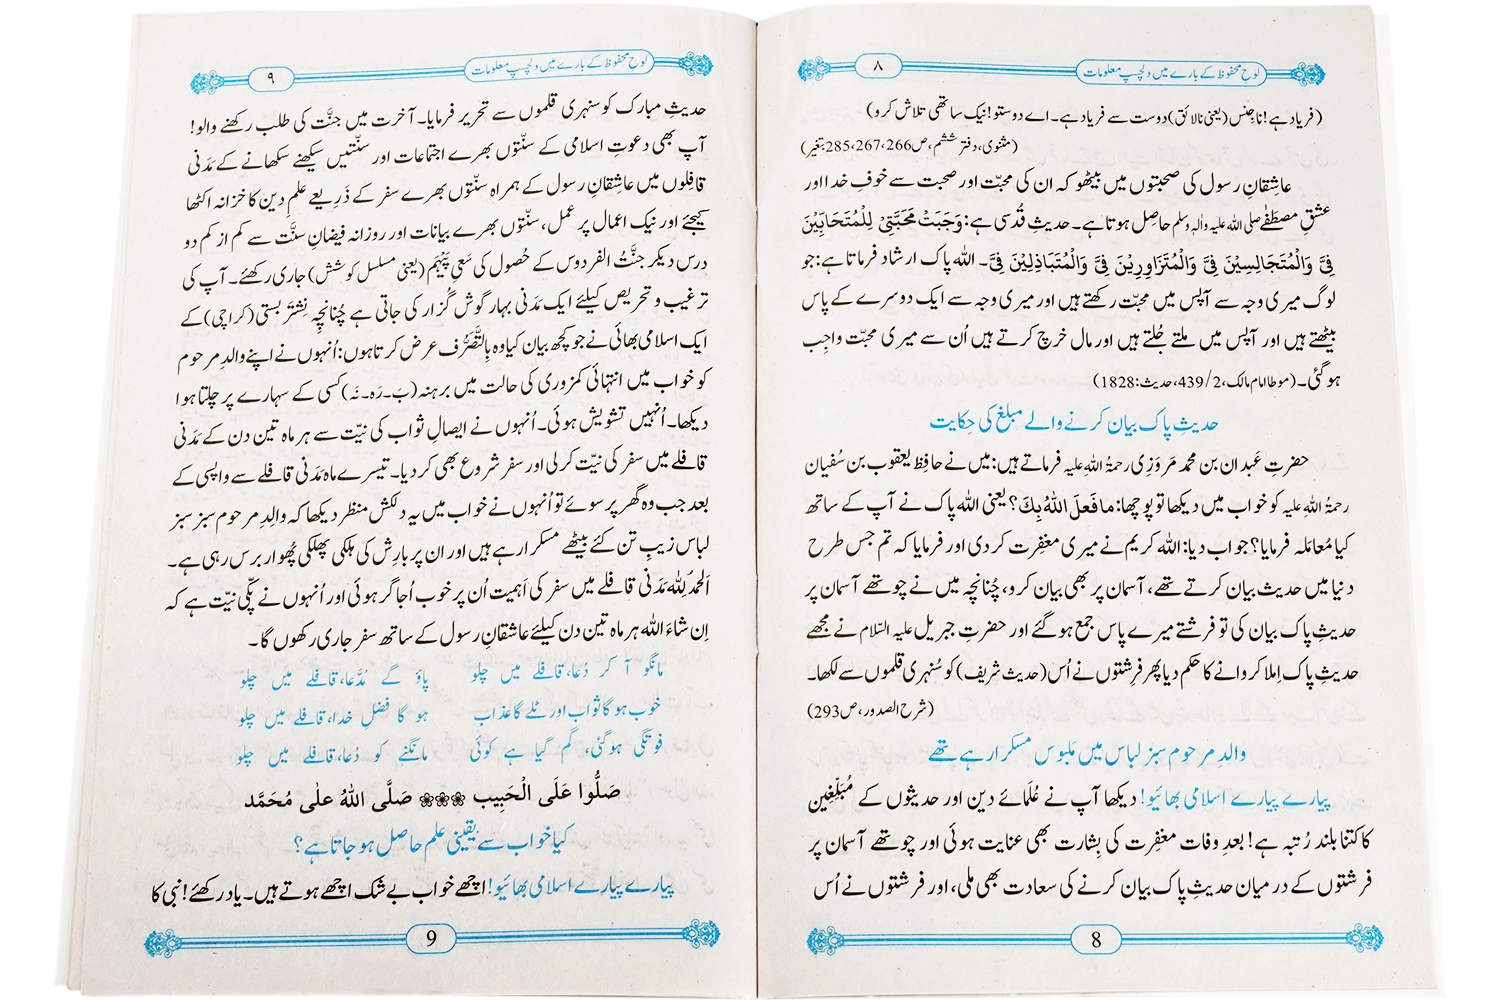 لوحِ محفوظ کے بارے میں دلچسپ معلومات
٨
(فریاد ہے! ناجنس (یعنی نالائق) دوست سے فریاد ہے۔ اے دوستو! نیک ساتھی تلاش کرو)
(مثنوی، دفتر ششم، ص266، 267، 285 بتغیر)
عاشقانِ رسول کی صحبتوں میں بیٹھو کہ ان کی محبّت اور صحبت سے خوفِ خدا اور
عشقِ مصطفٰے صلی اللہ علیہ واٰلہٖ وسلم حاصل ہوتا ہے۔ حدیثِ قُدسی ہے: وَجَبَتْ مَحَبَّتِیْ لِلْمُتَحَابِّیْنَ
فِیَّ وَالْمُتَجَالِسِیْنَ فِیَّ وَالْمُتَزَاوِرِیْنَ فِیَّ وَالْمُتَبَاذِلِیْنَ فِیَّ۔ اللہ پاک ارشاد فرماتا ہے: جو
لوگ میری وجہ سے آپس میں محبّت رکھتے ہیں اور میری وجہ سے ایک دوسرے کے پاس
بیٹھتے ہیں اور آپس میں ملتے جُلتے ہیں اور مال خرچ کرتے ہیں اُن سے میری محبّت واجِب
ہو گئی۔ (موطا امام مالک، 2/439، حدیث: 1828)
حدیثِ پاک بیان کرنے والے مبلغ کی حِکایت
حضرتِ عَبدان بن محمد مَروَزِی رحمۃُ اللہِ علیہ فرماتے ہیں: میں نے حافِظ یعقوب بن سُفیان
رحمۃُ اللہِ علیہ کو خواب میں دیکھا تو پوچھا: مَا فَعَلَ اللّٰہُ بِکَ؟ یعنی اللہ پاک نے آپ کے ساتھ
کیا مُعامَلہ فرمایا؟ جواب دیا: اللہ کریم نے میری مغفرت کر دی اور فرمایا کہ تم جس طرح
دنیا میں حدیث بیان کرتے تھے، آسمان پر بھی بیان کرو، چُنانچہ میں نے چوتھے آسمان پر
حدیثِ پاک بیان کی تو فرشتے میرے پاس جمع ہو گئے اور حضرتِ جبریل علیہ السّلام نے مجھے
حدیثِ پاک اِملا کروانے کا حکم دیا پھر فرِشتوں نے اُس (حدیث شریف) کو سُنہری قلموں سے لکھا۔
(شرح الصدور، ص293)
والدِ مرحوم سبز لباس میں مَلبوس مسکرا رہے تھے
پیارے پیارے اسلامی بھائیو! دیکھا آپ نے عُلَمائے دین اور حدیثوں کے مُبَلِّغِین
کا کتنا بلند رُتبہ ہے! بعدِ وفات مغفرت کی بِشارت بھی عنایت ہوئی اور چوتھے آسمان پر
فرشتوں کے درمیان حدیثِ پاک بیان کرنے کی سعادت بھی ملی، اور فرشتوں نے اُس
8
لوحِ محفوظ کے بارے میں دلچسپ معلومات
٩
حدیثِ مبارک کو سنہری قلموں سے تحریر فرمایا۔ آخرت میں جنّت کی طلب رکھنے والو!
آپ بھی دعوتِ اسلامی کے سنّتوں بھرے اجتماعات اور سنّتیں سیکھنے سکھانے کے مَدَنی
قافِلوں میں عاشقانِ رسول کے ہمراہ سنّتوں بھرے سفر کے ذَرِیعے علمِ دین کا خزانہ اکٹھا
کیجئے اور نیک اعمال پر عمل، سنّتوں بھرے بیانات اور روزانہ فیضانِ سنّت سے کم از کم دو
درس دیکر جنَّتُ الفردوس کے حُصول کی سَعیِ پَیہَم (یعنی مسلسل کوشش) جاری رکھئے۔ آپ کی
ترغیب و تحریص کیلئے ایک مَدَنی بہار گوش گُزار کی جاتی ہے چُنانچِہ نِشتَر بستی (کراچی) کے
ایک اسلامی بھائی نے جو کچھ بیان کیا وہ بِالتَّصَرُّف عرض کرتا ہوں: اُنہوں نے اپنے والدِ مرحوم
کو خواب میں انتہائی کمزوری کی حالت میں برہنہ (بَ۔رَہ۔نَہ) کسی کے سہارے پر چلتا ہوا
دیکھا۔ اُنہیں تشویش ہوئی۔ اُنہوں نے ایصالِ ثواب کی نیّت سے ہر ماہ تین دن کے مَدَنی
قافلے میں سفر کی نیّت کر لی اور سفر شروع بھی کر دیا۔ تیسرے ماہ مَدَنی قافلے سے واپسی کے
بعد جب وہ گھر پر سوئے تو اُنہوں نے خواب میں یہ دلکش منظر دیکھا کہ والدِ مرحوم سبز سبز
لباس زیبِ تن کئے بیٹھے مسکرا رہے ہیں اور ان پر بارِش کی ہلکی پھلکی پُھوار برس رہی ہے۔
اَلحمدُ لِلّٰہ مَدَنی قافلے میں سفر کی اَہمیت اُن پر خوب اُجاگر ہوئی اور اُنہوں نے پکّی نیّت ہے کہ
اِن شاءَ اللہ ہر ماہ تین دن کیلئے عاشقانِ رسول کے ساتھ سفر جاری رکھوں گا۔
مانگو آ کر دُعا، قافلے میں چلو پاؤ گے مُدَّعا، قافلے میں چلو
خوب ہو گا ثواب اور ٹلے گا عذاب ہو گا فضلِ خدا، قافلے میں چلو
فوتگی ہو گئی، گُم گیا ہے کوئی مانگنے کو دُعا، قافلے میں چلو
صَلُّوا عَلَی الْحَبِیب صَلَّی اللہُ علٰی مُحَمَّد
کیا خواب سے یقینی علم حاصل ہو جاتا ہے؟
پیارے پیارے اسلامی بھائیو! اچھے خواب بے شک اچھے ہوتے ہیں۔ یاد رکھئے! نبی کا
9